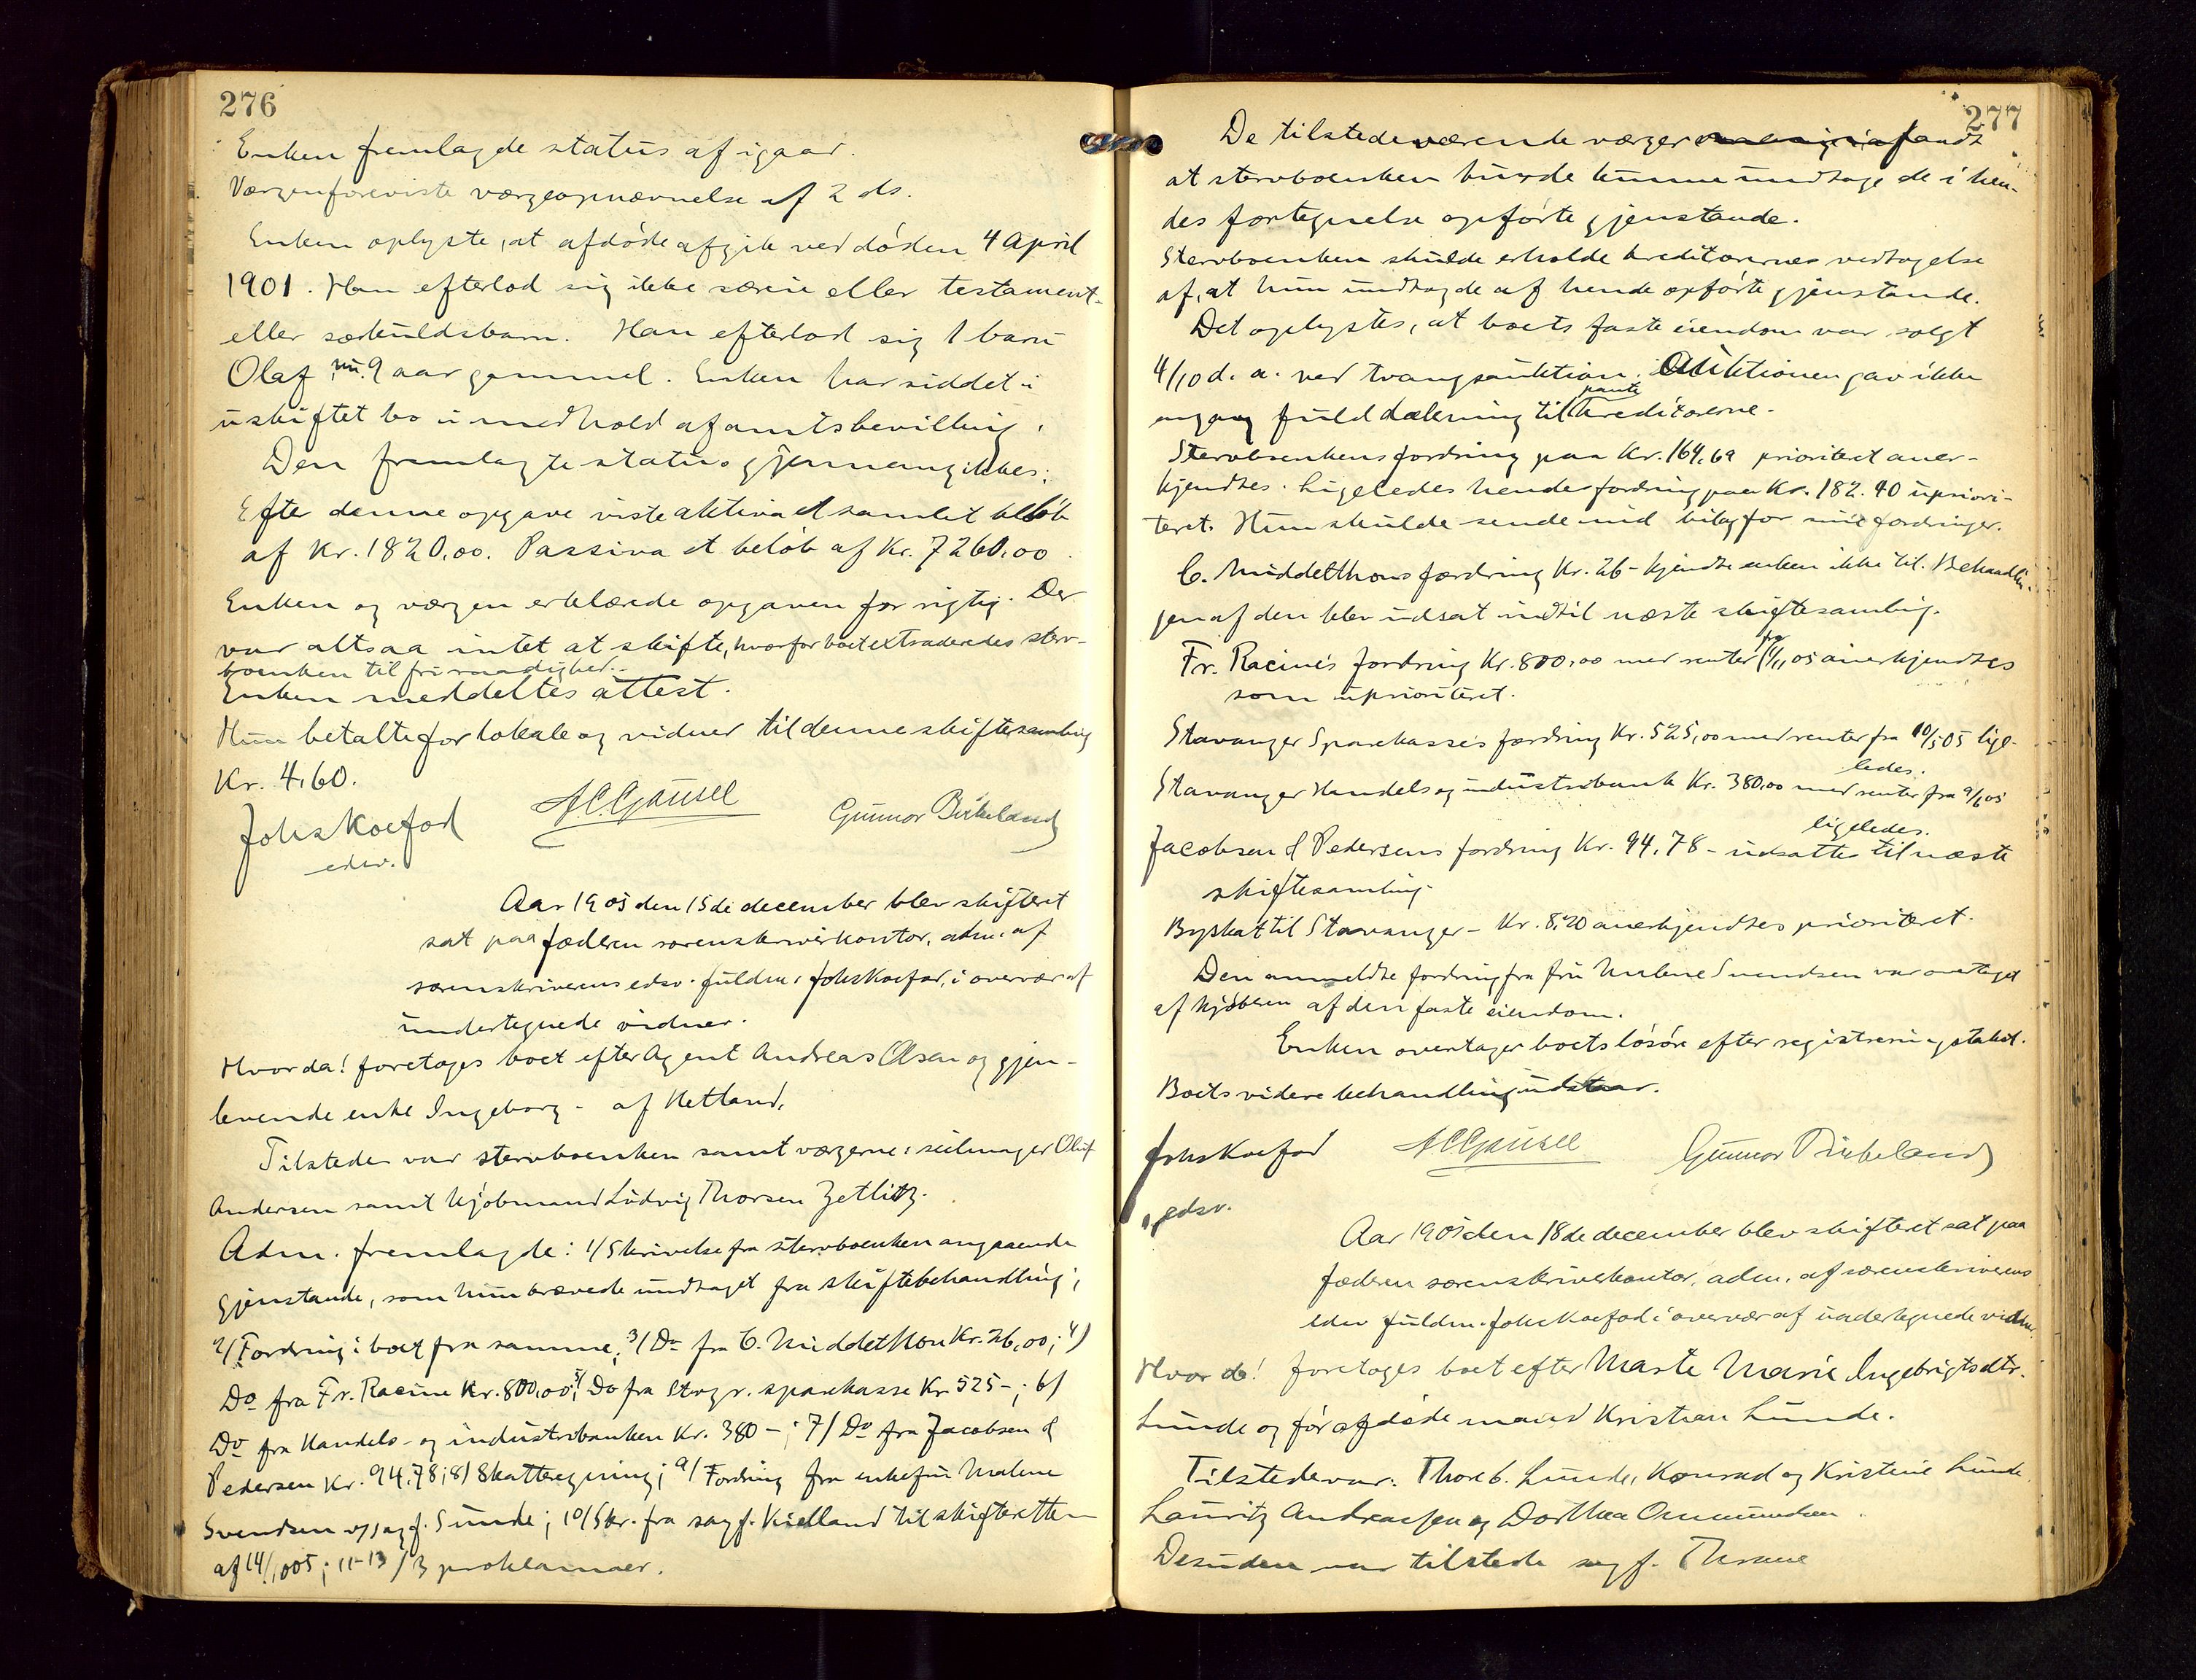 276
Enken fremlagde status af igaar.
Værgen foreviste værgeopnævnelse af 2 ds.
Enken oplyste, at afdøde afgik ved døden 4 April
1901. Han efterlod sig ikke særeie eller testament
eller særkuldsbarn. Han efterlod sig 1 barn
Olaf, nu 9 aar gammel. Enken har siddet i
uskiftet bo i medhold af amtsbevilling.
Den fremlagte status gjennemgikkes.
Efter denne opgave viste aktiva et samlet beløb
af Kr. 1820,00. Passiva et beløb af Kr. 7260,00.
Enken og værgen erklærede opgaven for rigtig. Der
var altsaa intet at skifte, hvorfor boet extraderedes sterv-
boenken til fri raadighed.
Enken meddeltes attest.
Hun betalte for lokale og vidner til denne skiftesamling
Kr. 4,60.
Johs Koefod
edsv.
A.C. Gausel
Gunnar Birkeland
Aar 1905 den 15de december blev skifteret
sat paa Jæderen sorenskriverkontor, adm. af
sorenskriverens edsv. fuldm. Johs Koefod, i overvær af
undertegnede vidner.
Hvorda! foretoges boet efter Agent Andreas Olsen og gjen-
levende enke Ingeborg - af Hetland.
Tilstede var stervboenken samt værgerne: seilmager Oluf
Andersen samt kjøbmand Ludvig Thorsen Zetlitz.
Adm. fremlagde: 1/ Skrivelse fra stervboenken angaaende
gjenstande, som hun krævede undtaget fra skiftebehandling;
2/ Fordring i boet fra samme; 3/ Do fra C. Middelthon Kr. 26,00; 4)
Do fra Fr. Racine Kr. 800,00; 5/ Do fra Stvgr. sparekasse Kr 525 -; 6/
Do fra Handels- og industribanken Kr. 380 -; 7/ Do fra Jacobsen &
Pedersen Kr. 94.78; 8) Skatteregning; 9/ Fordring fra enkefru Malene
Svendsen v/ sagf. Sunde; 10/ Skr. fra sagf. Kielland til skifteretten
af 14/10 05; 11-13/ 3 proklamaer.
277
De tilstedeværende værger fandt
at stervboenken burde kunne undtage de i hen-
des fortegnelse opførte gjenstande.
Stervboenken skulde erholde kreditorernes vedtagelse
af, at hun undtagde af hende opførte gjenstande.
Det oplystes, at boets faste eiendom var solgt
4/10 d. a. ved tvangsauktion. Auktionen gav ikke
engang fuld dækning til pantekreditorerne.
Stervboenkens fordring paa Kr. 164,69 prioritet aner-
kjendtes. Ligeledes hendes fordring paa Kr. 182.40 upriori-
teret. Hun skulde sende ind bilag for sine fordringer.
C. Middelthons fordring Kr. 26 - kjendte enken ikke til. Behandlin-
gen af den blev udsat indtil næste skiftesamling.
Fr. Racine's fordring Kr. 800,00 med renter fra 1/11 05 anerkjendtes
som uprioriteret.
Stavanger Sparekasses fordring Kr. 525,00 med renter fra 10/5 05 lige-
ledes.
Stavanger Handels og industribank Kr. 380,00 med renter fra 9/6 05
ligeledes.
Jacobsen & Pedersens fordring Kr. 94,78 - udsattes til næste
skiftesamling.
Byskat til Stavanger - Kr. 8,20 anerkjendtes prioriteret.
Den anmeldte fordring fra fru Malene Svendsen var overtaget
af kjøberen af den faste eiendom.
Enken overtager boets løsøre efter registreringstakst.
Boets videre behandling udstaar.
Johs Koefod
edsv.
A.C. Gausel
Gunnar Birkeland
Aar 1905 den 18de december blev skifteret sat paa
Jæderen sorenskriverkontor, adm. af sorenskriverens
edsv fuldm. Johs Koefod i overvær af undertegnede vidner.
Hvor da! foretoges boet efter Marte Marie Ingebrigtsdtr.
Lunde og før afdøde mand Kristian Lunde.
Tilstede var: Thore C. Lunde, Konrad og Kristine Lunde
Lauritz Andreassen og Dorthea Ommundsen.
Desuden var tilstede sagf. Thrane